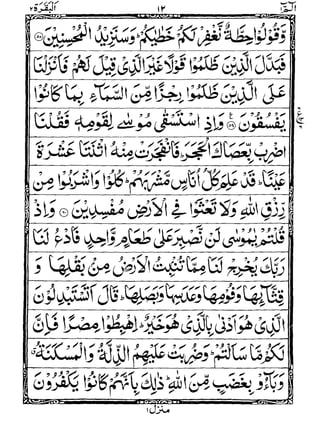 البقرة٢ ١٢ الٓمّٓ١
وَّقُوْلُوْا حِطَّةٌ نَّغْفِرْ لَكُمْ خَطٰيٰكُمْ ؕ وَسَنَزِيْدُ الْمُحْسِنِيْنَ ۝۵۸
فَبَدَّلَ الَّذِيْنَ ظَلَمُوْا قَوْلًا غَيْرَ الَّذِيْ قِيْلَ لَهُمْ فَاَنْزَلْنَا
عَلَى الَّذِيْنَ ظَلَمُوْا رِجْزًا مِّنَ السَّمَآءِ بِمَا كَانُوْا
يَفْسُقُوْنَ ۝۵۹ وَاِذِ اسْتَسْقٰى مُوْسٰى لِقَوْمِهٖ فَقُلْنَا
اضْرِبْ بِّعَصَاكَ الْحَجَرَ ؕ فَانْفَجَرَتْ مِنْهُ اثْنَتَا عَشْرَةَ
عَيْنًا ؕ قَدْ عَلِمَ كُلُّ اُنَاسٍ مَّشْرَبَهُمْ ؕ كُلُوْا وَاشْرَبُوْا مِنْ
رِّزْقِ اللّٰهِ وَلَا تَعْثَوْا فِي الْاَرْضِ مُفْسِدِيْنَ ۝۶۰ وَاِذْ
قُلْتُمْ يٰمُوْسٰى لَنْ نَّصْبِرَ عَلٰى طَعَامٍ وَّاحِدٍ فَادْعُ لَنَا
رَبَّكَ يُخْرِجْ لَنَا مِمَّا تُنْۢبِتُ الْاَرْضُ مِنْۢ بَقْلِهَا وَ
قِثَّآئِهَا وَفُوْمِهَا وَعَدَسِهَا وَبَصَلِهَا ؕ قَالَ اَتَسْتَبْدِلُوْنَ
الَّذِيْ هُوَ اَدْنٰى بِالَّذِيْ هُوَ خَيْرٌ ؕ اِهْبِطُوْا مِصْرًا فَاِنَّ
لَكُمْ مَّا سَاَلْتُمْ ؕ وَضُرِبَتْ عَلَيْهِمُ الذِّلَّةُ وَالْمَسْكَنَةُ ٭
وَبَآءُوْ بِغَضَبٍ مِّنَ اللّٰهِ ؕ ذٰلِكَ بِاَنَّهُمْ كَانُوْا يَكْفُرُوْنَ
منزل١